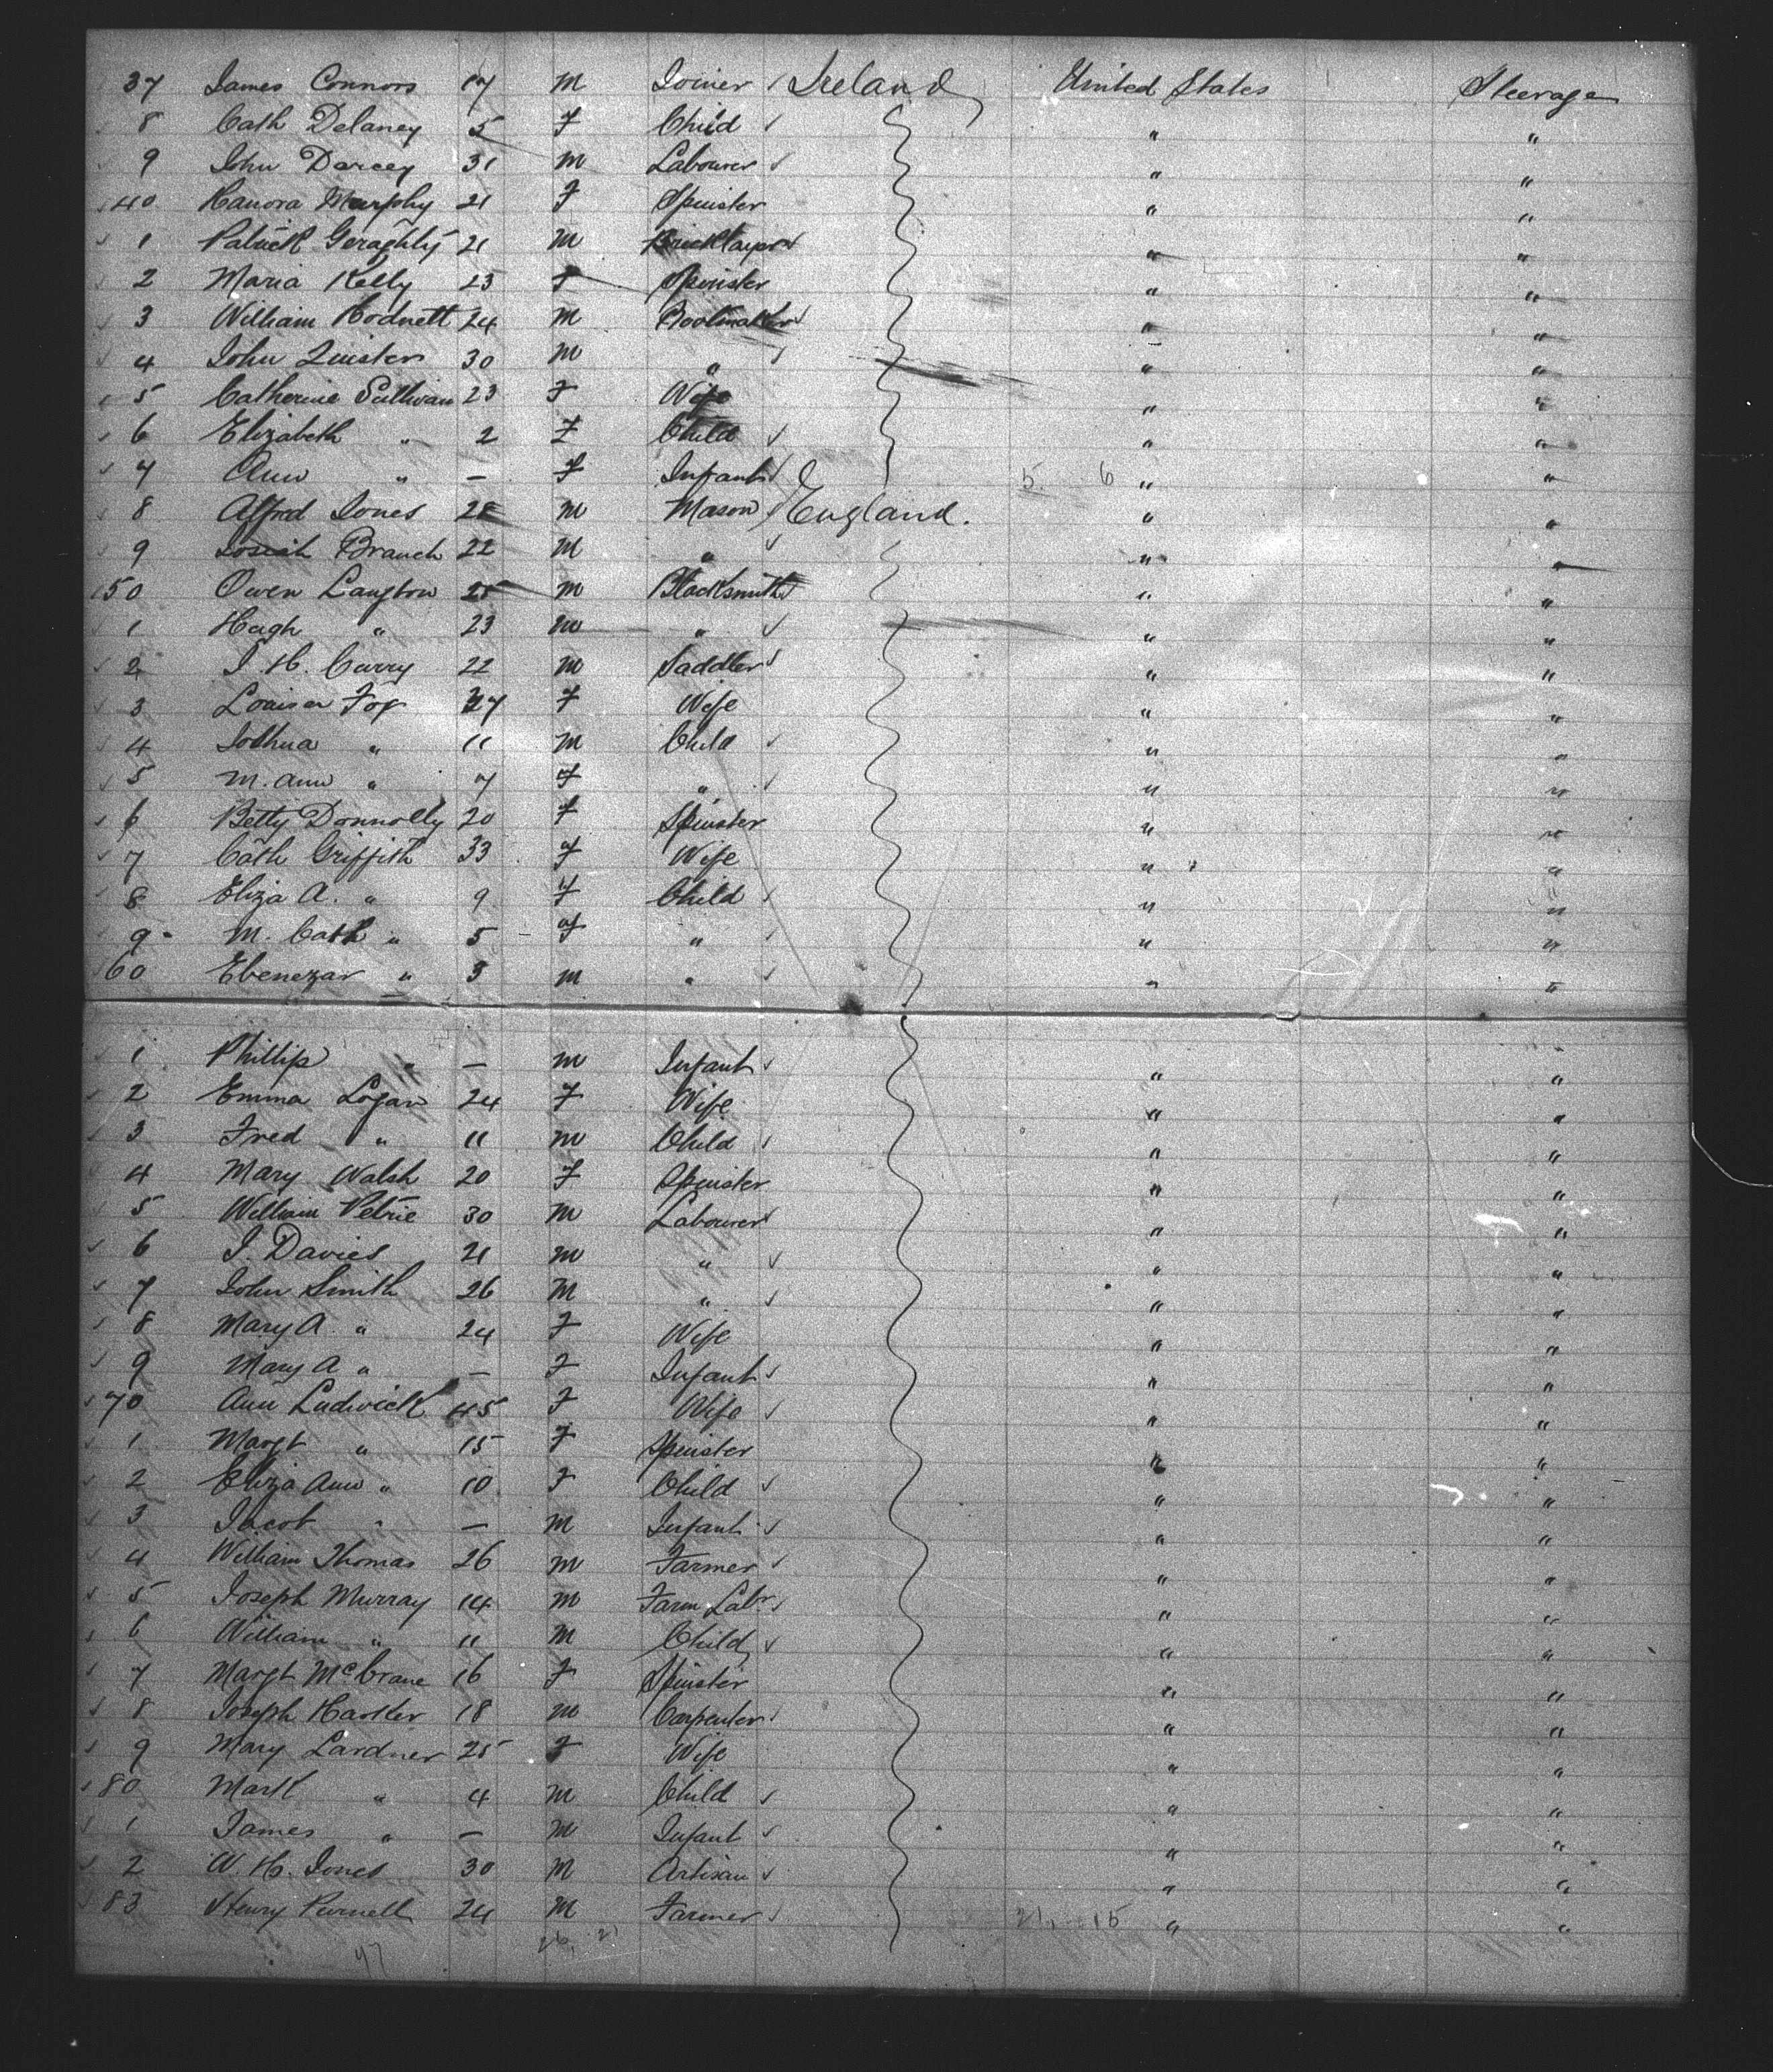 37 James Connors 17 M Joiner Ireland United States Steerage
8 Cath Delaney 5 F Child " "
9 John Darcey 31 M Labourer " "
40 Hanora Murphy 21 F Spinster " "
1 Patrick Geraghty 21 M Bricklayer " "
2 Maria Kelly 23 F Spinster " "
3 William Hodnett 24 M Bootmaker " "
4 John 30 M " " "
5 Catherine Sullivan 23 F Wife " "
6 Elizabeth " 2 F Child " "
7 Ann " — F Infant 5 6 " "
8 Alfred Jones 28 M Mason England. " "
9 Josiah Branch 22 M " " "
50 Owen Langton M Blacksmith " "
1 Hugh " 23 M " " "
2 J. H. Curry 22 M Saddler " "
3 Louisa Fox F Wife " "
4 Joshua " 11 M Child " "
5 M. Ann " 7 F " " "
6 Betty Donnolly 20 F Spinster " "
7 Cath Griffith 33 F Wife " "
8 Eliza A. " 9 F Child " "
9 M. Cath " 5 F " " "
60 Ebenezar " 3 M " " "
1 Phillip " — M Infant " "
2 Emma Logan 24 F Wife " "
3 Fred " 11 M Child " "
4 Mary Walsh 20 F Spinster " "
5 William Petrie 30 M Labourer " "
6 J. Davies 21 M " " "
7 John Smith 26 M " " "
8 Mary A. " 24 F Wife " "
9 Mary A " — F Infant " "
70 Ann Ludwick 45 F Wife " "
1 Margt " 15 F Spinster " "
2 Eliza Ann " 10 F Child " "
3 Jacob " — M Infant " "
4 William Thomas 26 M Farmer " "
5 Joseph Murray 14 M Farm Labr " "
6 William " 11 M Child " "
7 Margt McCrane 16 F Spinster " "
8 Joseph Harker 18 M Carpenter " "
9 Mary Lardner 25 F Wife " "
80 Mark " 4 M Child " "
1 James " — M Infant " "
2 W. H. Jones 30 M Artisan " "
83 Henry Purnell 24 M Farmer 21 15 " "
47 26 21